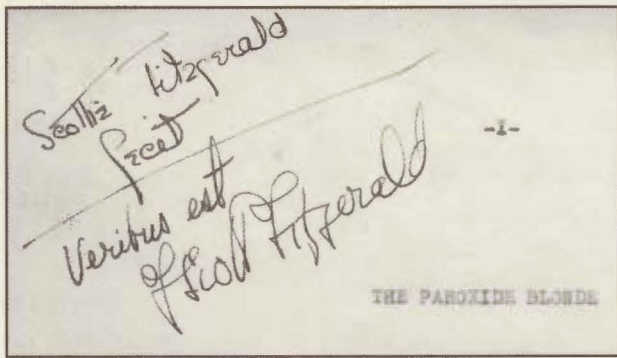 Scottie Fitzgerald
fecit
Veribus est
F Scott Fitzgerald
-I-
THE PAROXIDE BLONDE